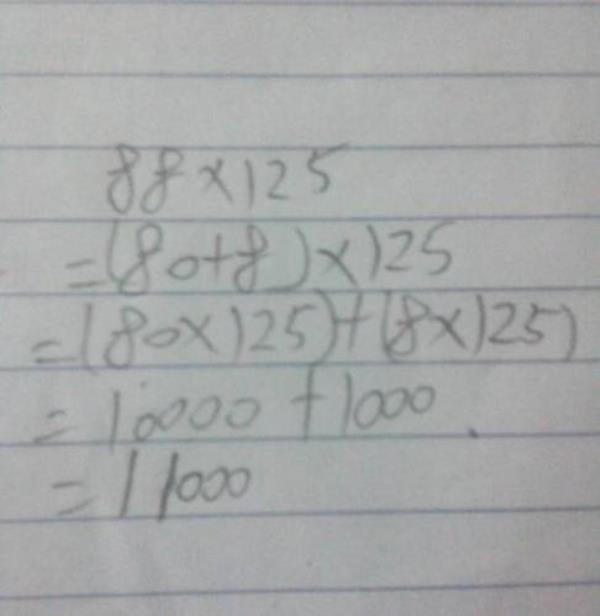 88×125
=(80+8)×125
=(80×125)+(8×125)
=10000+1000
=11000